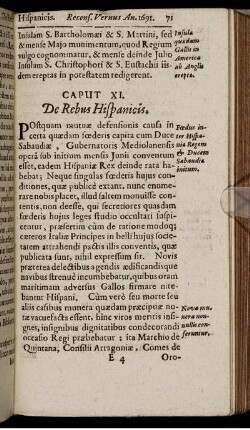 Hispanicis. Recens. Vernus An. 1691. 71
Insulam S. Bartholomæi & S. Martini, sed
& mense Majo nominatum, quod Regium
vulgo cognominatur, & mense deinde Julio
Insulam S. Christophori & S. Eustachii iis-
dem ereptas in potestatem redigerent.
Insula
quædam
Gallis in
America
ab Anglis
erepta.
CAPUT XI.
De Rebus Hispanicis.
POstquam mutuæ defensionis causa in
certa quædam fœderis capita cum Duce
Sabaudiæ, Gubernatoris Mediolanensis
operâ sub initium mensis Junii conventum
esset, eadem Hispaniæ Rex deinde rata ha-
bebat; Neque singulas fœderis hujus con-
ditiones, quæ publicè extant, nunc enume-
rare nobis placet, illud saltem monuisse con-
tentis, non deesse, qui secretiores quasdam
fœderis hujus leges studio occultari suspi-
centur, præsertim cùm de ratione modoq;
cæteros Italiæ Principes in belli hujus socie-
tatem attrahendi pactis illis conventis, quæ
publicata sunt, nihil expressum sit. Novis
præterea delectibus agendis ædificandisque
navibus strenuè incumbebatur, quibus oram
maritimam adversus Gallos firmare nite-
bantur Hispani. Cùm verò seu morte seu
aliis casibus munera quædam præcipuæ no-
tæ vacuefacta essent, hinc viros meritis insi-
gnes, insignibus dignitatibus condecorandi
occasio Regi præbebatur: ita Marchio de
Quintana, Consilii Arragoniæ, Comes de
Fœdus in-
ter Hispa-
nia Regem
& Ducem
Sabaudiæ
initum.
Nova mu-
nera non-
nullis con-
feruntur.
E 4 Oro-